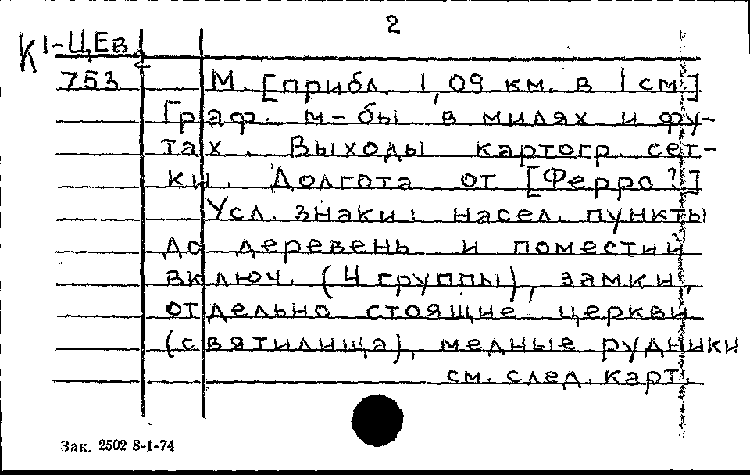 2
К1-ЦЕв
753 М. [прибл. 1,09 км. в 1 см.]
Граф. м-бы в милях и фу-
тах. Выходы картогр. сет-
ки. Долгота от [Ферро?]
Усл. знаки: насел. пункты
до деревень и поместий
включ. (4 группы), замки,
отдельно стоящие церкви
(святилища), медные рудники
см. след. карт.
Зак. 2502 8-1-74